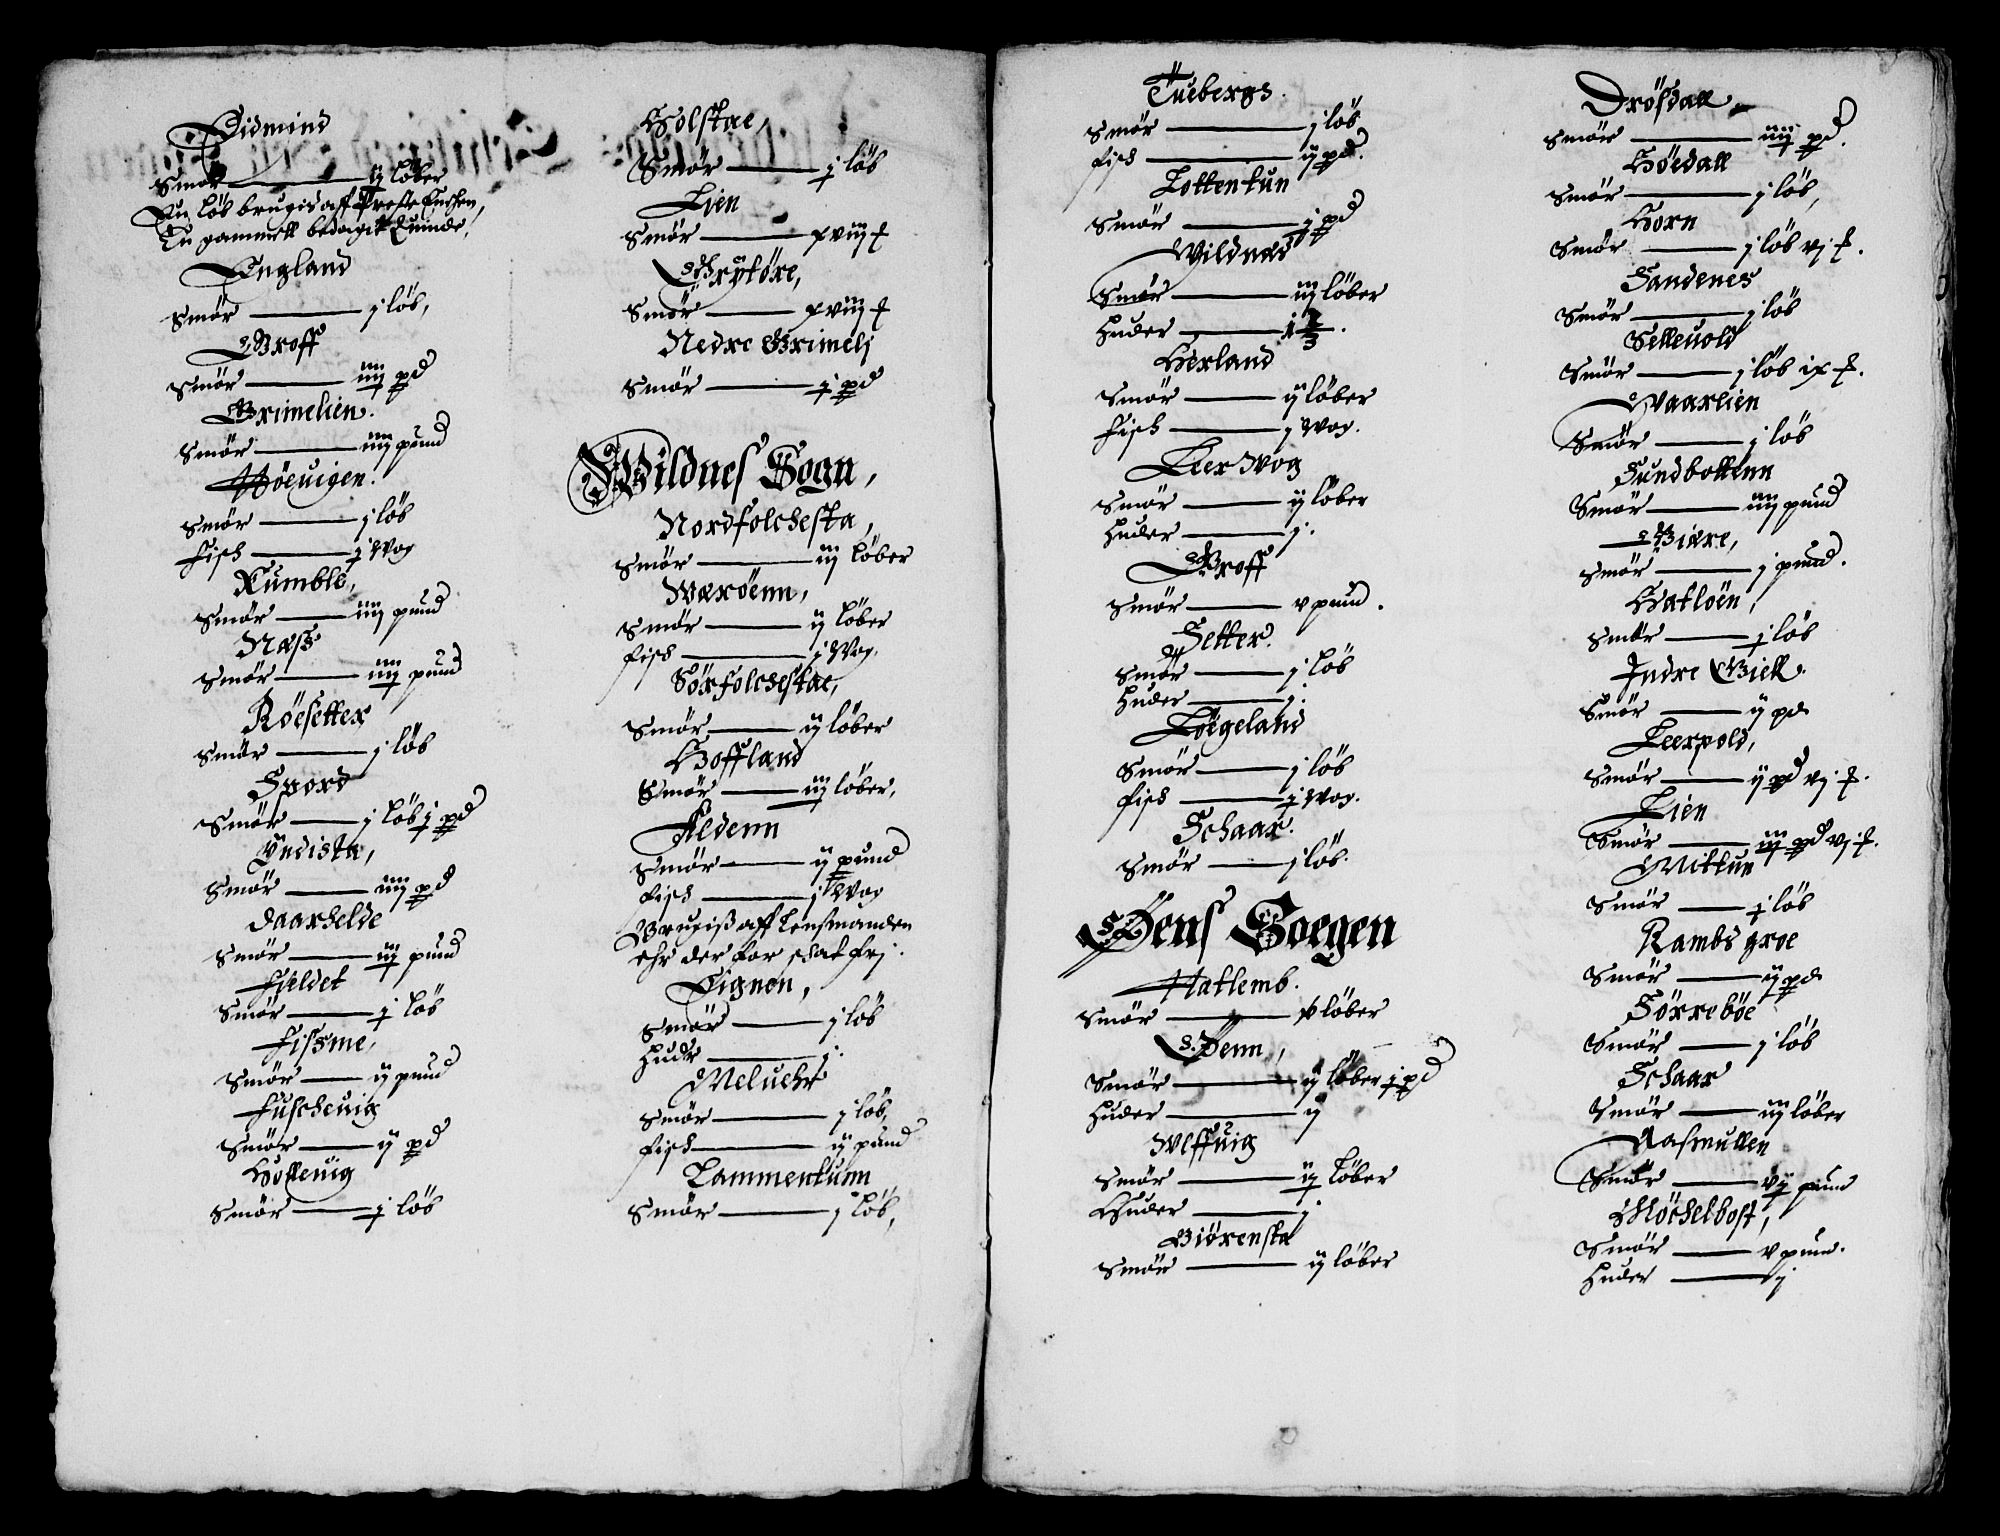 Eidmind
Smör ij löber
En löb brugis aff Preste Enchen,
En gammell bedagit Quinde,
England
Smör j löb,
Groff
Smör iiij pd
Grimelien.
Smör iiij pund
Höeuigen.
Smör j löb
Fisch j Wog
Rumble,
Smör iiij pund
Næss
Smör iiij pund
Röesetter
Smör j löb
Spord
Smör j löb j pd
Yndista,
Smör iiij pd
Daarhelde
Smör iij pund
Fieldet
Smör j löb
Fissme,
Smör ij pund
Fuscheuig
Smör ij pd
Holleuig
Smör j löb
Holstae,
Smör j löb
Lien
Smör xviij ℔
Grytöre,
Smör xviij ℔
Nedre Grimelj
Smör j pd
Wildnes Sogn,
Nordfolchesta,
Smör iij löber
Wæröenn,
Smör ij löber
Fisch j Wog.
Sörfolchestae,
Smör ij löber
Hoffland
Smör iij löber,
Aldenn
Smör ij pund
Fisch j Wog
Brugiss aff Lensmanden
ehr der for schat frj.
Tignen,
Smör j löb
Hudr j.
Meluehr
Smör j löb,
Fisch ij pund
Lammentunn
Smör j löb,
Tuebergs.
Smör j löb
Fisch ij pd.
Tottentun
Smör j pd
Wildnæs
Smör iij löber
Huder j 2/3.
Herland
Smör ij löber
Fisch j Wog.
Leerwog
Smör ij löber
Huder j.
Groff
Smör v pund.
Setter.
Smör j löb
Huder j.
Löegeland
Smör j löb
Fisch j Wog.
Schaar.
Smör j löb.
Öens Soegen
Hatlemb.
Smör x löber
Öenn,
Smör ij löber j pd
Huder ij
Weffuig
Smör iij löber
Huder j
Giörensta
Smör ij löber
Drösdall
Smör iiij pd.
Höedall
Smör j löb,
Horn
Smör j löb vj ℔.
Sandenes
Smör j löb
Selleuold
Smör j löb ix ℔.
Waarlien
Smör j löb
Sundbottenn
Smör iiij pund
Giære,
Smör j pund.
Hatlöen,
Smör j löb
Indre Giell.
Smör ij pd
Leerpold,
Smör ij pd vj ℔.
Lien
Smör iij pd vj ℔.
Mittun
Smör j löb
Rambs groe
Smör ij pd
Sörreböe
Smör j löb
Schaar
Smör iij löber
Aasmullen
Smör vij pund
Möchelbost,
Smör v pund.
Huder j